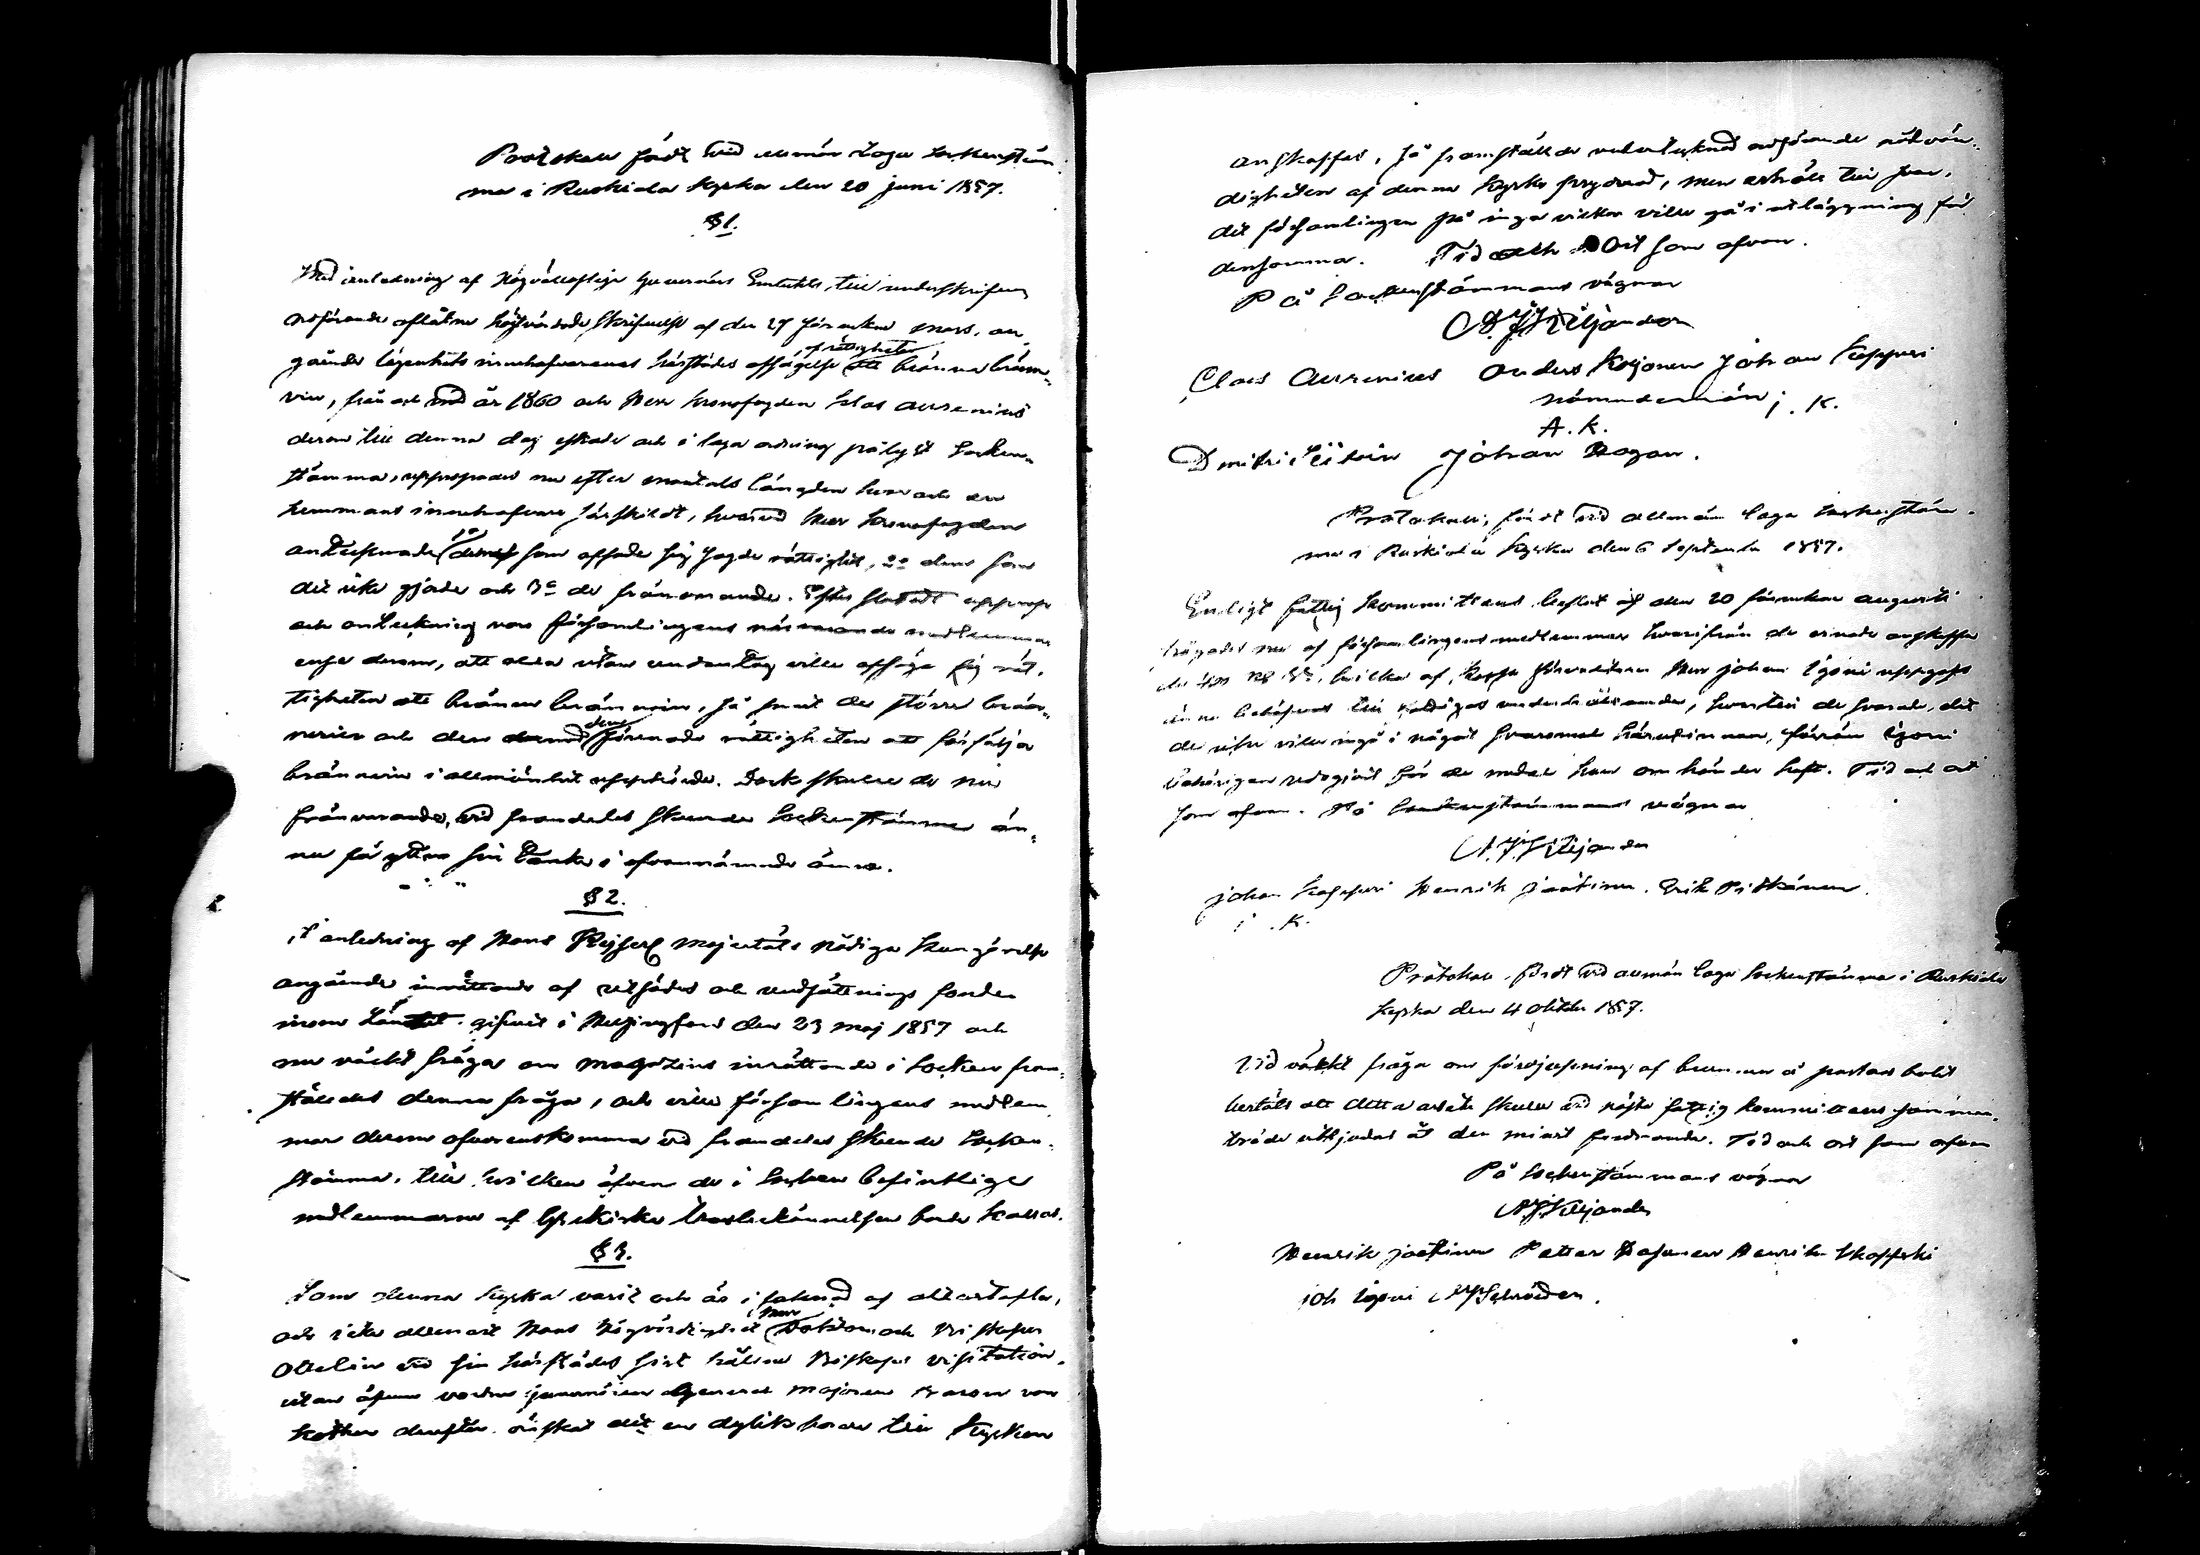 Protokoll fördt vid allmän laga sockenstäm-
ma i Ruskiala kyrka den 20 juni 1857.
§ 1.
Med anledning af Högvälloflige Guvernörs Embetets, till underskrifven
ansående aflåtne högtärade skrifvelse af den 27 förvekne mars, an-
gående lägenhets innehafvarenes härstädes afsägelse af rättigheten att bränna bränn-
vin, från och med år 1860 och Herr kronofogden Klas Aurenius
derom till denna dag ästade och i laga ordning pålyst socken-
stämma, uppropades nu efter mantals längden hvar och en
hemmans innehafvare särskildt, hvarvid Herr kronofogden
antecknade 1o dem som afsade sig sagde rättighet, 2o dem som
det icke gjorde och 3o de frånvarande. Efter slutadt upprop
och anteckning voro församlingens närvarande medlemmar
ense derom, att alla utan undantag ville afsäga sig rät-
tigheten att bränna brännvin, så snart de större bränn-
erier och dem dermed förenade rättigheten att försälja
brännvin i allmänhet upphörde. Dock skulle de nu
frånvarande, vid framdeles skeende sockenstämma än-
nu få yttra sin tanke i ofvannämnde ämne.
§ 2.
I anledning af Hans Kejserl Majestäts Nådiga Kungörelse
angående inrättande af utsädes och undsättnings fonder
inom Länet gifven i Helsingfors den 23 maj 1857 och
nu väckt fråga om Magazins inrättande i Socken fram-
ställdes denna fråga, och ville församlingens medlem-
mar derom öfverenskomma vid framdeles skeende Socken-
stämma, till hvilken äfven de i Socken befintlige
medlemmarne af Grekiska Trosbekännelsen borde kallas.
§ 3.
Som denna kyrka varit och är i saknad af altartafla,
och icke allenast Hans Högvördighet Herr Doktorn och Biskopen
Ottelin vid sin härstädes sist hållne Biskops visitation,
utan äfven General Majoren Baron von
Kothen derefter önskat att en dylik borde till kyrkan
anskaffas, så framställde undertecknad nödvän-
digheten af denna kyrko prydnad, men erhöll till svar,
att församlingen på inga vilkor ville gå i utläggning för
densamma. Tid och Ort som ofvan.
På Sockenstämmans vägnar
A. J. Kiljander
Claes Aurenius Anders Koljonen Johan Kopperi
nämndemän; . K.
A. K.
Dmitri Johan Hagan.
Protokoll, fördt vid allmän laga sockenstäm-
ma i Ruskiala kyrka den 6 September 1857.
Enligt fattig kommittens beslut af den 20 förvekne augusti
tillfrågades nu af församlingens medlemmar hvarifrån de ernade anskaffa
de hvilka af Herr Johan Igoni uppgifs
ännu behöfvas till underhållande, hvartill de svarade, att
de icke ville ingå i något svaromål härutinnan, förrän Igoni
behörigen redogjort för de medel han om händer haft. Tid och ort
som ofvan. På Sockenstämmans vägnar
A. J. Kiljander
Johan Kopperi Henrik Jaatinen. Erik Pitkänen.
. K.
Protokoll, fördt vid allmän laga Sockenstämma i Ruskiala
kyrka den 4 oktober 1857.
Vid väckt fråga om fördjupning af brunnen å pastors bolet
beslöts att detta arbete skulle vid nästa fattig kommittens samman-
träde utbjudas åt den minst fordrande. Tid och ort som ofvan
På Sockenstämmans vägnar
A. J. Kiljander
Henrik Jaatinen Petter Henrik
Joh Igoni Schröder.